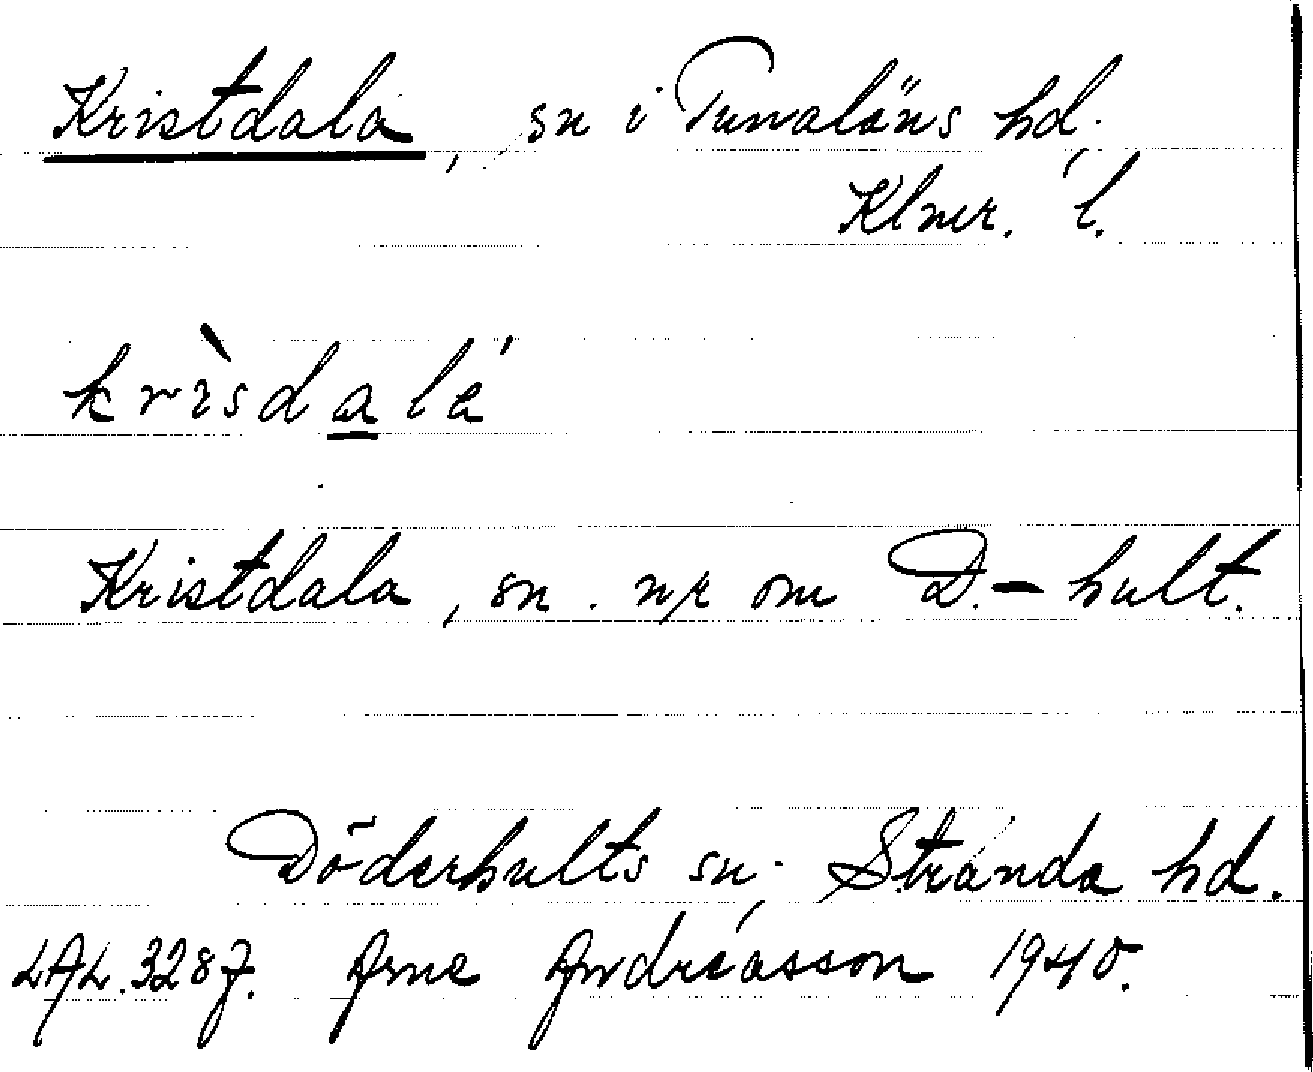 Kristdala, sn i Tunaläns hd,
Klmr. l.
krìsdalá
Kristdala, sn. nv om D.-hult.
Döderhults sn, Stranda hd.
LAL. 3287. Arne Andréasson 1940.